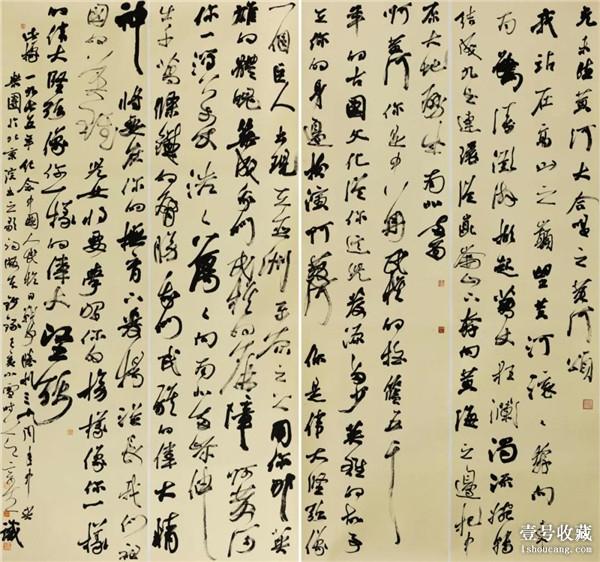 光未然黄河大合唱之黄河颂
我站在高山之巅望黄河滚々奔向东
南惊涛澎湃掀起万丈狂澜浊流宛转
结成九曲连环从昆仑山下奔向黄海之边把中
原大地劈成南北两面
啊黄河你是中华民族的摇篮五千
年的古国文化从你这儿发源多少英雄的故事
在你的身边扮演啊黄河你是伟大坚强像
一个巨人出现在亚洲平原之上用你那英
雄的体魄筑成我们民族的屏障啊黄河
你一泻万丈浩々荡々向南北两岸伸
出千万条铁的臂膀我们民族的伟大精
神将要在你的育下发扬滋长我们祖
国的英雄儿女将要学习你的榜样像你一样
的伟大坚强像你一样的伟大坚强
中国人民抗日战争胜利周年
壹号收藏
1shoucang.com